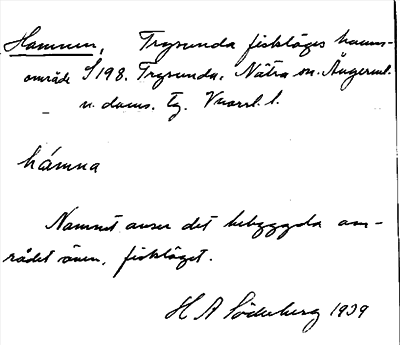 Hamnen, Trysunda fiskläges hamn-
område S 198. Trysunda, Nätra sn. Ångerml.
n. doms. tg. l.
hámna
Namnet avser det bebyggda om-
rådet även, fiskläget.
H A Söderberg 1939